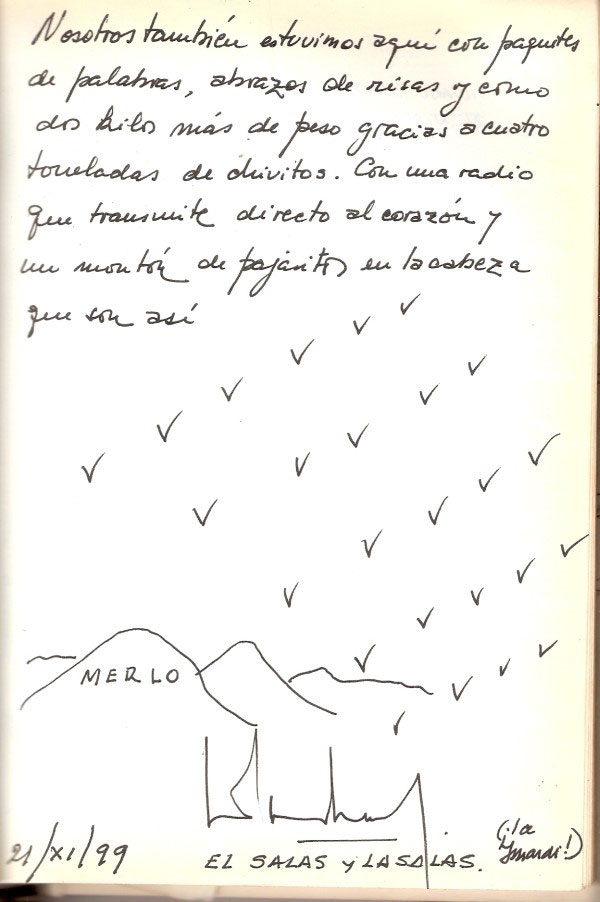 Nosotros también estuvimos aquí con paquetes
de palabras, abrazos de risas y como
dos kilos más de peso gracias a cuatro
toneladas de chivitos. Con una radio
que transmite directo al corazón y
un montón de pajaritos en la cabeza
que son así
MERLO
21/XI/99
EL SALAS y LASALAS.
(¡la